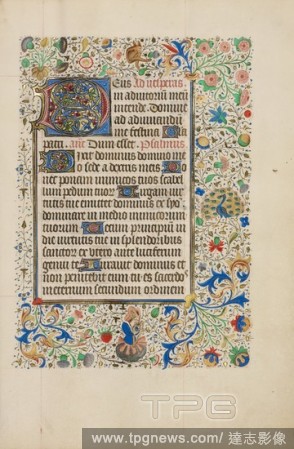 Deus Ad vesperas
in adiutorium meū
intende. Domine
ad adiuuandū
me festina Glo
patri. ant Dum esset. Psalmus
Dixit dominus domino meo
sede a dextris meis Do
nec ponam inimicos tuos scabel
lum pedum tuorū Virgam uir
tutis tue emittet dominus ex syon
dominare in medio inimicorum
tuorum Tecum principiū in
die uirtutis tue in splendoribus
sanctorū ex utero ante luciferum
genui te Iurauit dominus et
non penitebit eum tu es sacerdos
in eternum secundum ordinem
TPG
www.tpgnews.com/達志影像